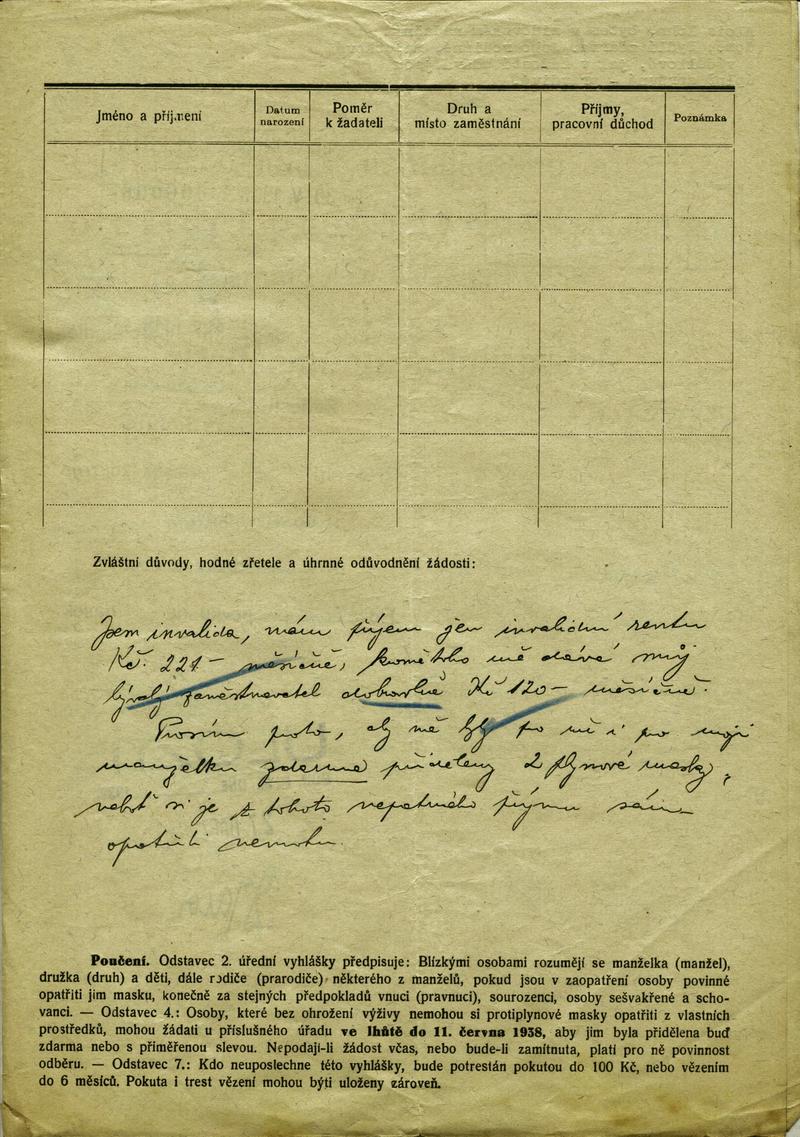 Jméno a příjmení
Datum narození
Poměr k žadateli
Druh a místo zaměstnání
Příjmy, pracovní důchod
Poznámka
Zvláštní důvody, hodné zřetele a úhrnné odůvodnění žádosti:
Jsem invalida, mám příjem jen invalidní rentu
Kč. 221— měsíčně, kromě toho mě dává můj
bývalý zaměstnavatel dobrovolně Kč 120— měsíčně.
Prosím proto, aby mě byly pro mě i pro moji
manželku zdarma přiděleny 2 plynové masky,
neboť si je z tohoto nepatrného příjmu sám
opatřiti nemohu.
Poučení. Odstavec 2. úřední vyhlášky předpisuje: Blízkými osobami rozumějí se manželka (manžel),
družka (druh) a děti, dále rodiče (prarodiče) některého z manželů, pokud jsou v zaopatření osoby povinné
opatřiti jim masku, konečně za stejných předpokladů vnuci (pravnuci), sourozenci, osoby sešvakřené a scho-
vanci. — Odstavec 4.: Osoby, které bez ohrožení výživy nemohou si protiplynové masky opatřiti z vlastních
prostředků, mohou žádati u příslušného úřadu ve lhůtě do 11. června 1938, aby jim byla přidělena buď
zdarma nebo s přiměřenou slevou. Nepodají-li žádost včas, nebo bude-li zamítnuta, platí pro ně povinnost
odběru. — Odstavec 7.: Kdo neuposlechne této vyhlášky, bude potrestán pokutou do 100 Kč, nebo vězením
do 6 měsíců. Pokuta i trest vězení mohou býti uloženy zároveň.